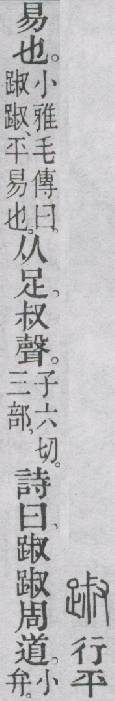 踧行平
易也。小雅毛傳曰、踧踧、平易也。从足、叔聲。子六切。三部、詩曰、踧踧周道。小弁。